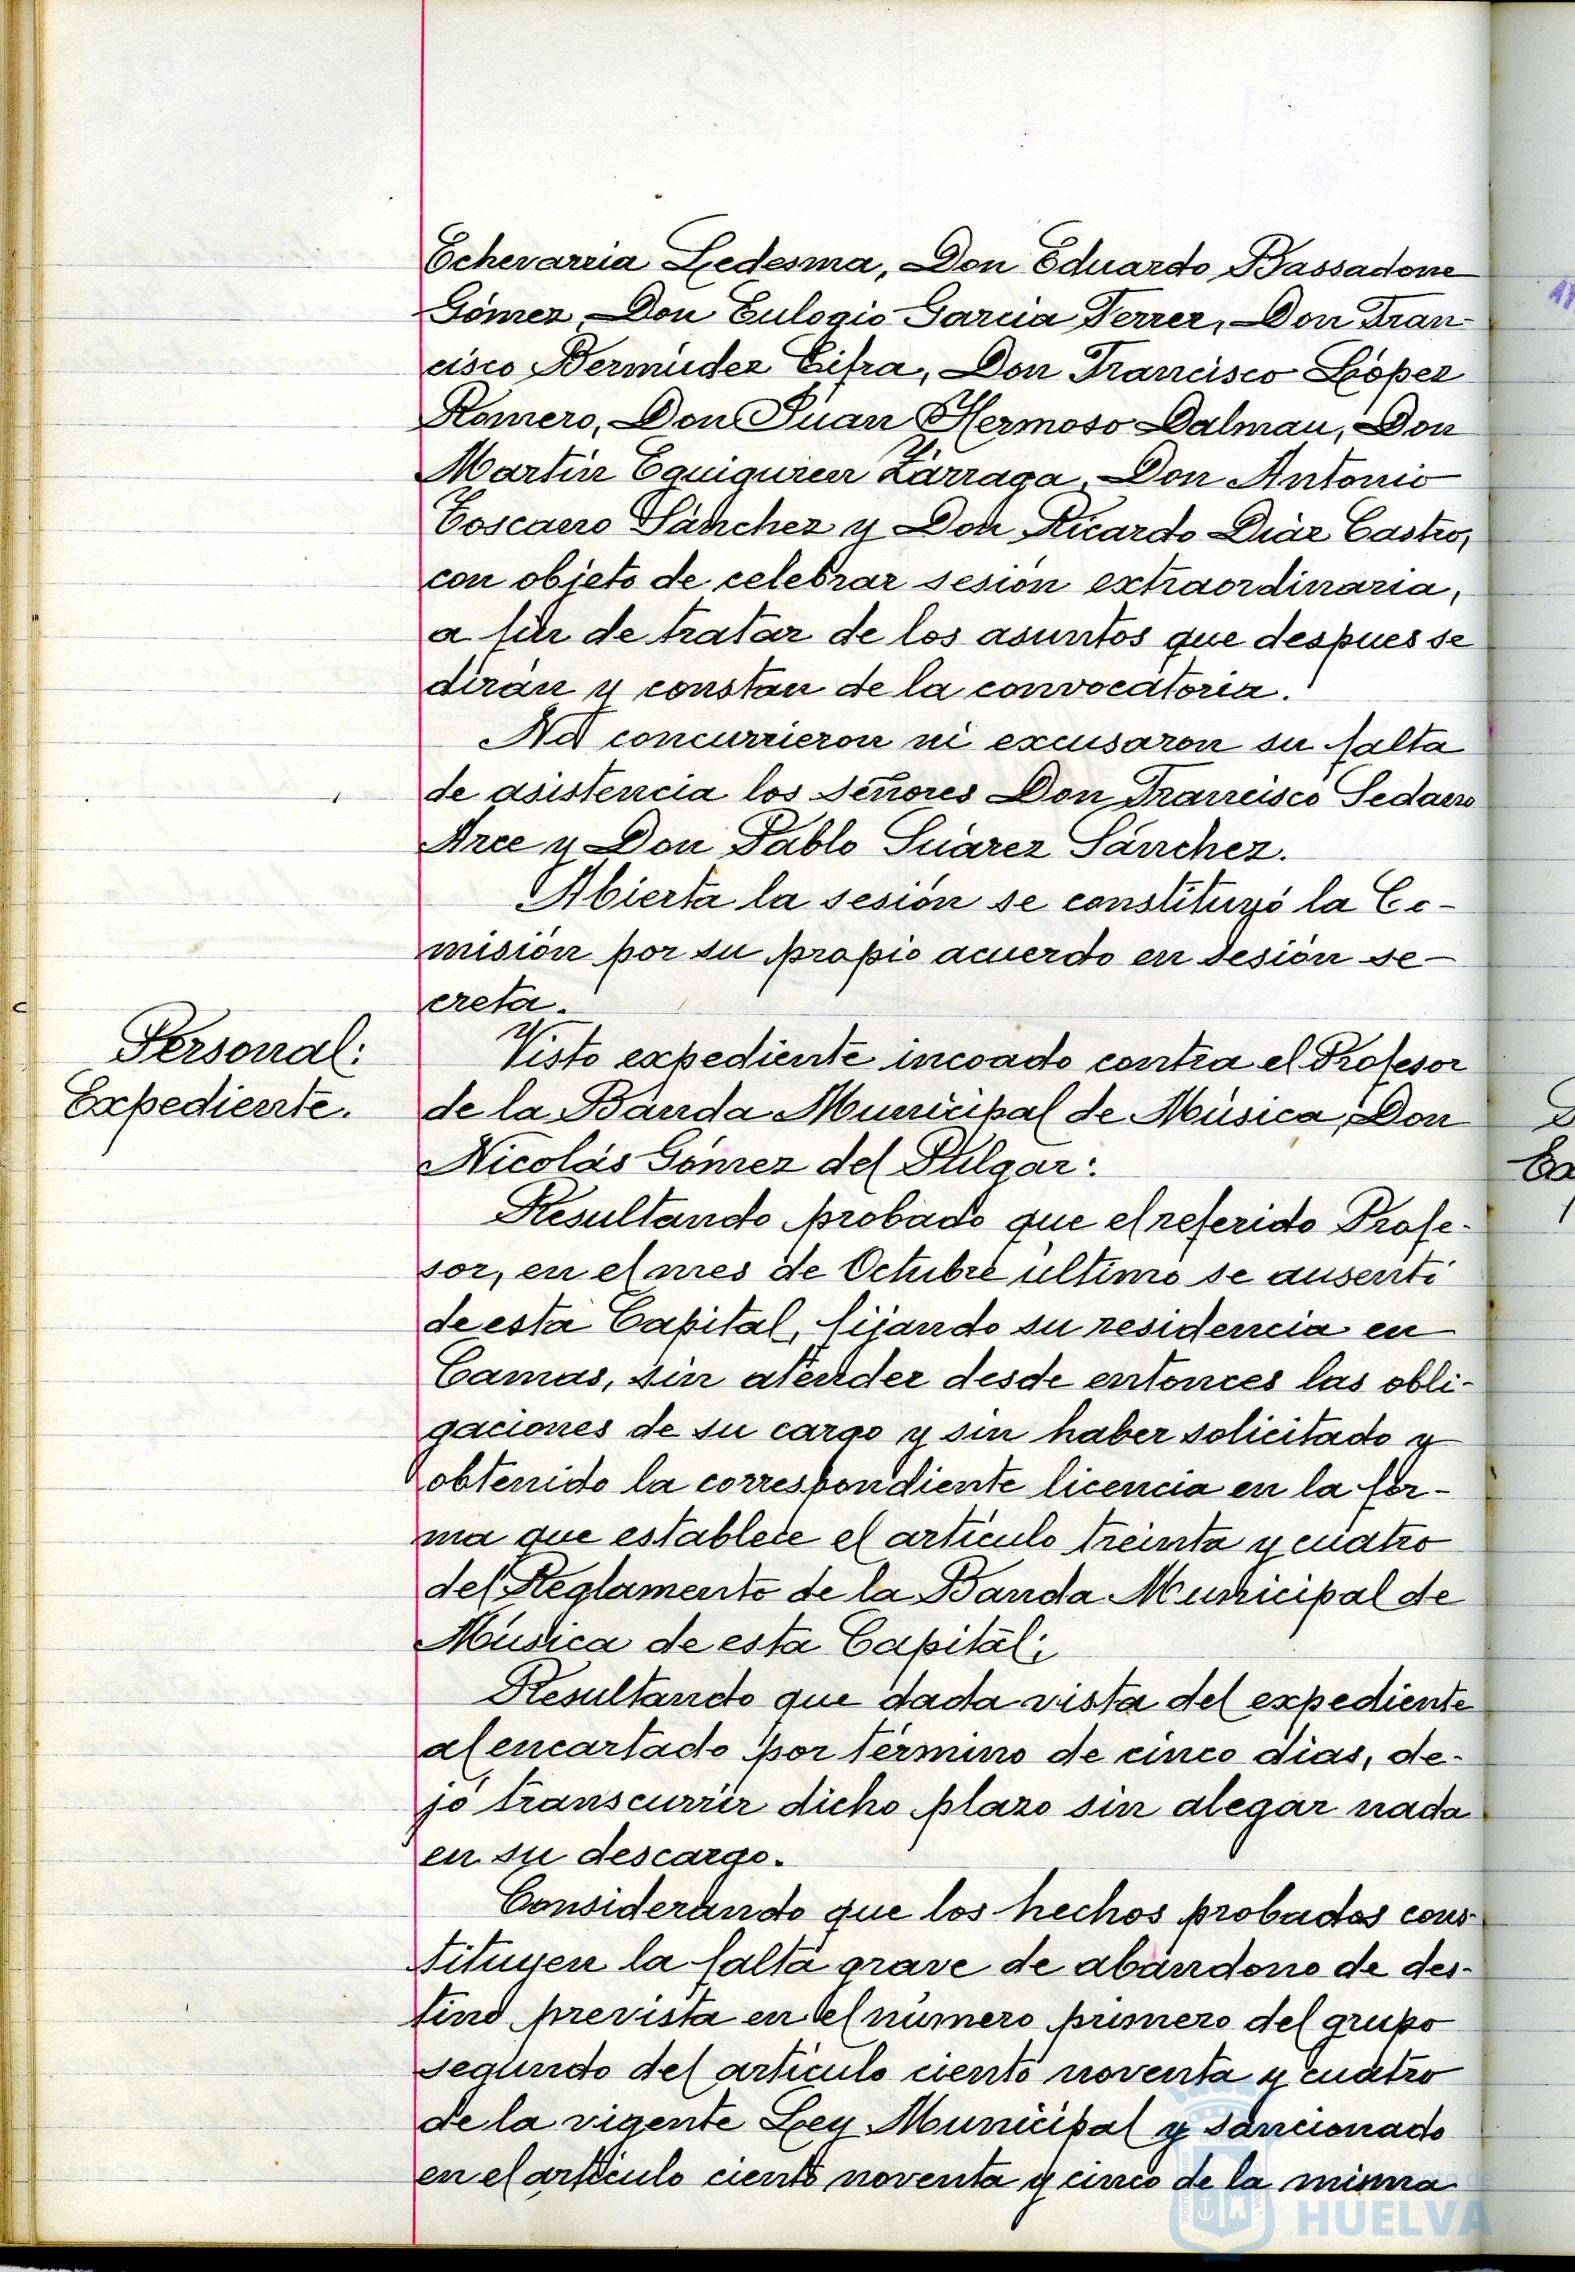 Echevarria Ledesma, Don Eduardo Bassadone
Gómez, Don Eulogio Garcia Ferrer, Don Fran-
cisco Bermúdez Cifra, Don Francisco López
Romero, Don Juan Hermoso Dalmau, Don
Martin Eguiguren Zárraga, Don Antonio
Toscano Sánchez y Don Ricardo Diaz Castro,
con objeto de celebrar sesión extraordinaria,
a fin de tratar de los asuntos que despues se
dirán y constan de la convocatoria.
No concurrieron ni excusaron su falta
de asistencia los señores Don Francisco Sedano
Arce y Don Pablo Suárez Sánchez.
Abierta la sesión se constituyó la Co-
misión por su propio acuerdo en sesión se-
creta.
Personal:
Expediente.
Visto expediente incoado contra el Profesor
de la Banda Municipal de Música, Don
Nicolás Gómez del Pulgar:
Resultando probado que el referido Profe-
sor, en el mes de Octubre último se ausentó
de esta Capital, fijando su residencia en
Camas, sin atender desde entonces las obli-
gaciones de su cargo y sin haber solicitado y
obtenido la correspondiente licencia en la for-
ma que establece el articulo treinta y cuatro
del Reglamento de la Banda Municipal de
Música de esta Capital;
Resultando que dada vista del expediente
al encartado por término de cinco dias, de-
jó transcurrir dicho plazo sin alegar nada
en su descargo.
Considerando que los hechos probados cons-
tituyen la falta grave de abandono de des-
tino prevista en el número primero del grupo
segundo del articulo ciento noventa y cuatro
de la vigente Ley Municipal y sancionado
en el articulo ciento noventa y cinco de la misma
HUELVA